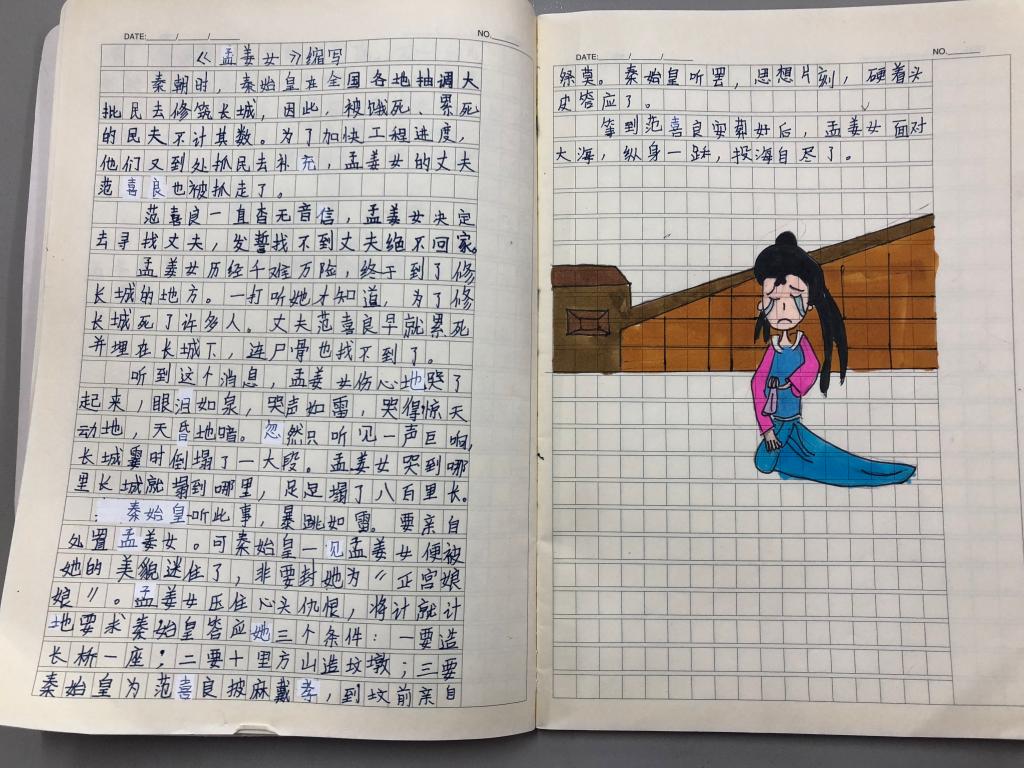 DATE: / /
NO.
《孟姜女》缩写
秦朝时，秦始皇在全国各地抽调大
批民去修筑长城，因此，被饿死、累死
的民夫不计其数。为了加快工程进度，
他们又到处抓民去补充，孟姜女的丈夫
范喜良也被抓走了。
范喜良一直杳无音信，孟姜女决定
去寻找丈夫，发誓找不到丈夫绝不回家。
孟姜女历经千难万险，终于到了修
长城的地方。一打听她才知道，为了修
长城死了许多人。丈夫范喜良早就累死
并埋在长城下，连尸骨也找不到了。
听到这个消息，孟姜女伤心地哭了
起来，眼泪如泉，哭声如雷，哭得惊天
动地，天昏地暗。忽然只听见一声巨响，
长城霎时倒塌了一大段。孟姜女哭到哪
里长城就塌到哪里，足足塌了八百里长。
秦始皇听此事，暴跳如雷。要亲自
处置孟姜女。可秦始皇一见孟姜女便被
她的美貌迷住了，非要封她为“正宫娘
娘”。孟姜女压住心头仇恨，将计就计
地要求秦始皇答应她三个条件：一要造
长桥一座；二要十里方山造坟墩；三要
秦始皇为范喜良披麻戴孝，到坟前亲自
DATE: / /
NO.
祭奠。秦始皇听罢，思想片刻，硬着头
皮答应了。
等到范喜良安葬好后，孟姜女面对
大海，纵身一跃，投海自尽了。